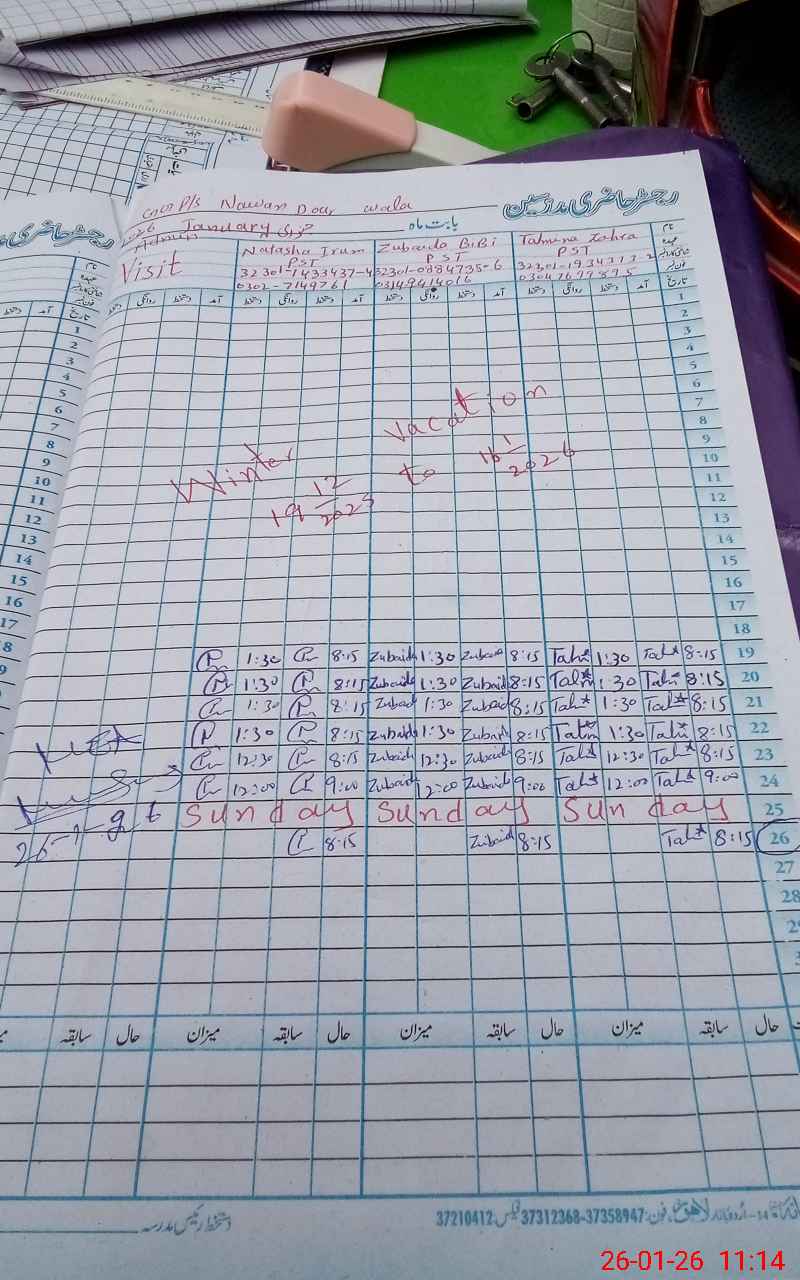 رجسٹر حاضری مدرسین
GGPS Nawan Dour wala
بابت ماہ جنوری January 2026
Visit
Natasha Irum Zubaida BiBi Tahmina Zahra نام
PST PST PST عہدہ
32301-1433437-4 32301-0884735-6 32301-1934313-2
0302-7149761 03149614016 03047677895
دستخط روانگی دستخط آمد دستخط روانگی دستخط آمد دستخط روانگی دستخط آمد تاریخ
1
2
3
4
5
6
7
8
9
10
11
12
13
14
15
16
17
18
Winter vacation
19 12/2025 to 16 1/2026
1:30 8:15 Zubaida 1:30 Zubaida 8:15 Tah 1:30 Tah 8:15 19
1:30 8:15 Zubaida 1:30 Zubaida 8:15 Tah 1:30 Tah 8:15 20
1:30 8:15 Zubaida 1:30 Zubaida 8:15 Tah 1:30 Tah 8:15 21
1:30 8:15 Zubaida 1:30 Zubaida 8:15 Tah 1:30 Tah 8:15 22
12:30 8:15 Zubaida 12:30 Zubaida 8:15 Tah 12:30 Tah 8:15 23
12:00 9:00 Zubaida 12:00 Zubaida 9:00 Tah 12:00 Tah 9:00 24
Sunday Sunday Sunday 25
8:15 Zubaida 8:15 Tah 8:15 26
27
28
میزان سابقہ حال میزان سابقہ حال میزان سابقہ حال
دستخط رئیس مدرسہ
اردو بازار لاہور فون: 37358947-37312368 فیکس: 37210412
26-01-26 11:14